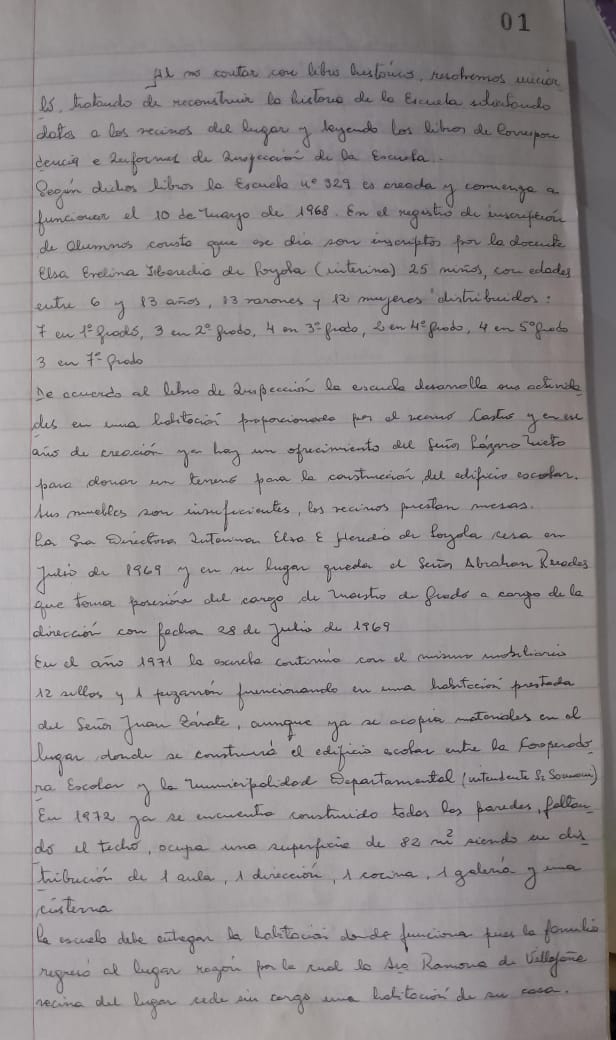 01
Al no contar con libro histórico, resolvemos iniciar
lo, tratando de reconstruir la historia de la Escuela solicitando
datos a los vecinos del lugar y leyendo los libros de Correspon
dencia e Informes de Inspección de la Escuela.
Según dichos libros la Escuela nº 329 es creada y comienza a
funcionar el 10 de mayo de 1968. En el registro de inscripción
de alumnos consta que ese día son inscriptos por la docente
Elsa Evelina de Loyola (interina) 25 niños, con edades
entre 6 y 13 años, 13 varones y 12 mujeres distribuidos:
7 en 1º grado, 3 en 2º grado, 4 en 3º grado, 2 en 4º grado, 4 en 5º grado
3 en 7º grado
De acuerdo al libro de Inspección la escuela desarrolla sus activida
des en una habitación proporcionada por el vecino Castro y en ese
año de creación ya hay un ofrecimiento del Señor Lázaro Nieto
para donar un terreno para la construcción del edificio escolar.
Sus muebles son insuficientes, los vecinos prestan mesas.
La Sra Directora Interina Elsa E Heredia de Loyola cesa en
Julio de 1969 y en su lugar queda el Señor Abrahan
que toma posesión del cargo de Maestro de Grado a cargo de la
dirección con fecha 28 de Julio de 1969
En el año 1971 la escuela continúa con el mismo mobiliario
12 sillas y 1 pizarrón funcionando en una habitación prestada
del Señor Juan Zárate, aunque ya se acopia materiales en el
lugar donde se construirá el edificio escolar entre la Cooperado
ra Escolar y la Municipalidad Departamental (intendente Sr)
En 1972 ya se encuentra construido todas las paredes, faltan-
do el techo, ocupa una superficie de 82 m² siendo su dis
tribución de 1 aula, 1 dirección, 1 cocina, 1 galería y una
cisterna
La escuela debe entregar la habitación donde funciona pues la familia
regresó al lugar razón por la cual la Sra Ramona de Villafañe
vecina del lugar cede sin cargo una habitación de su casa.